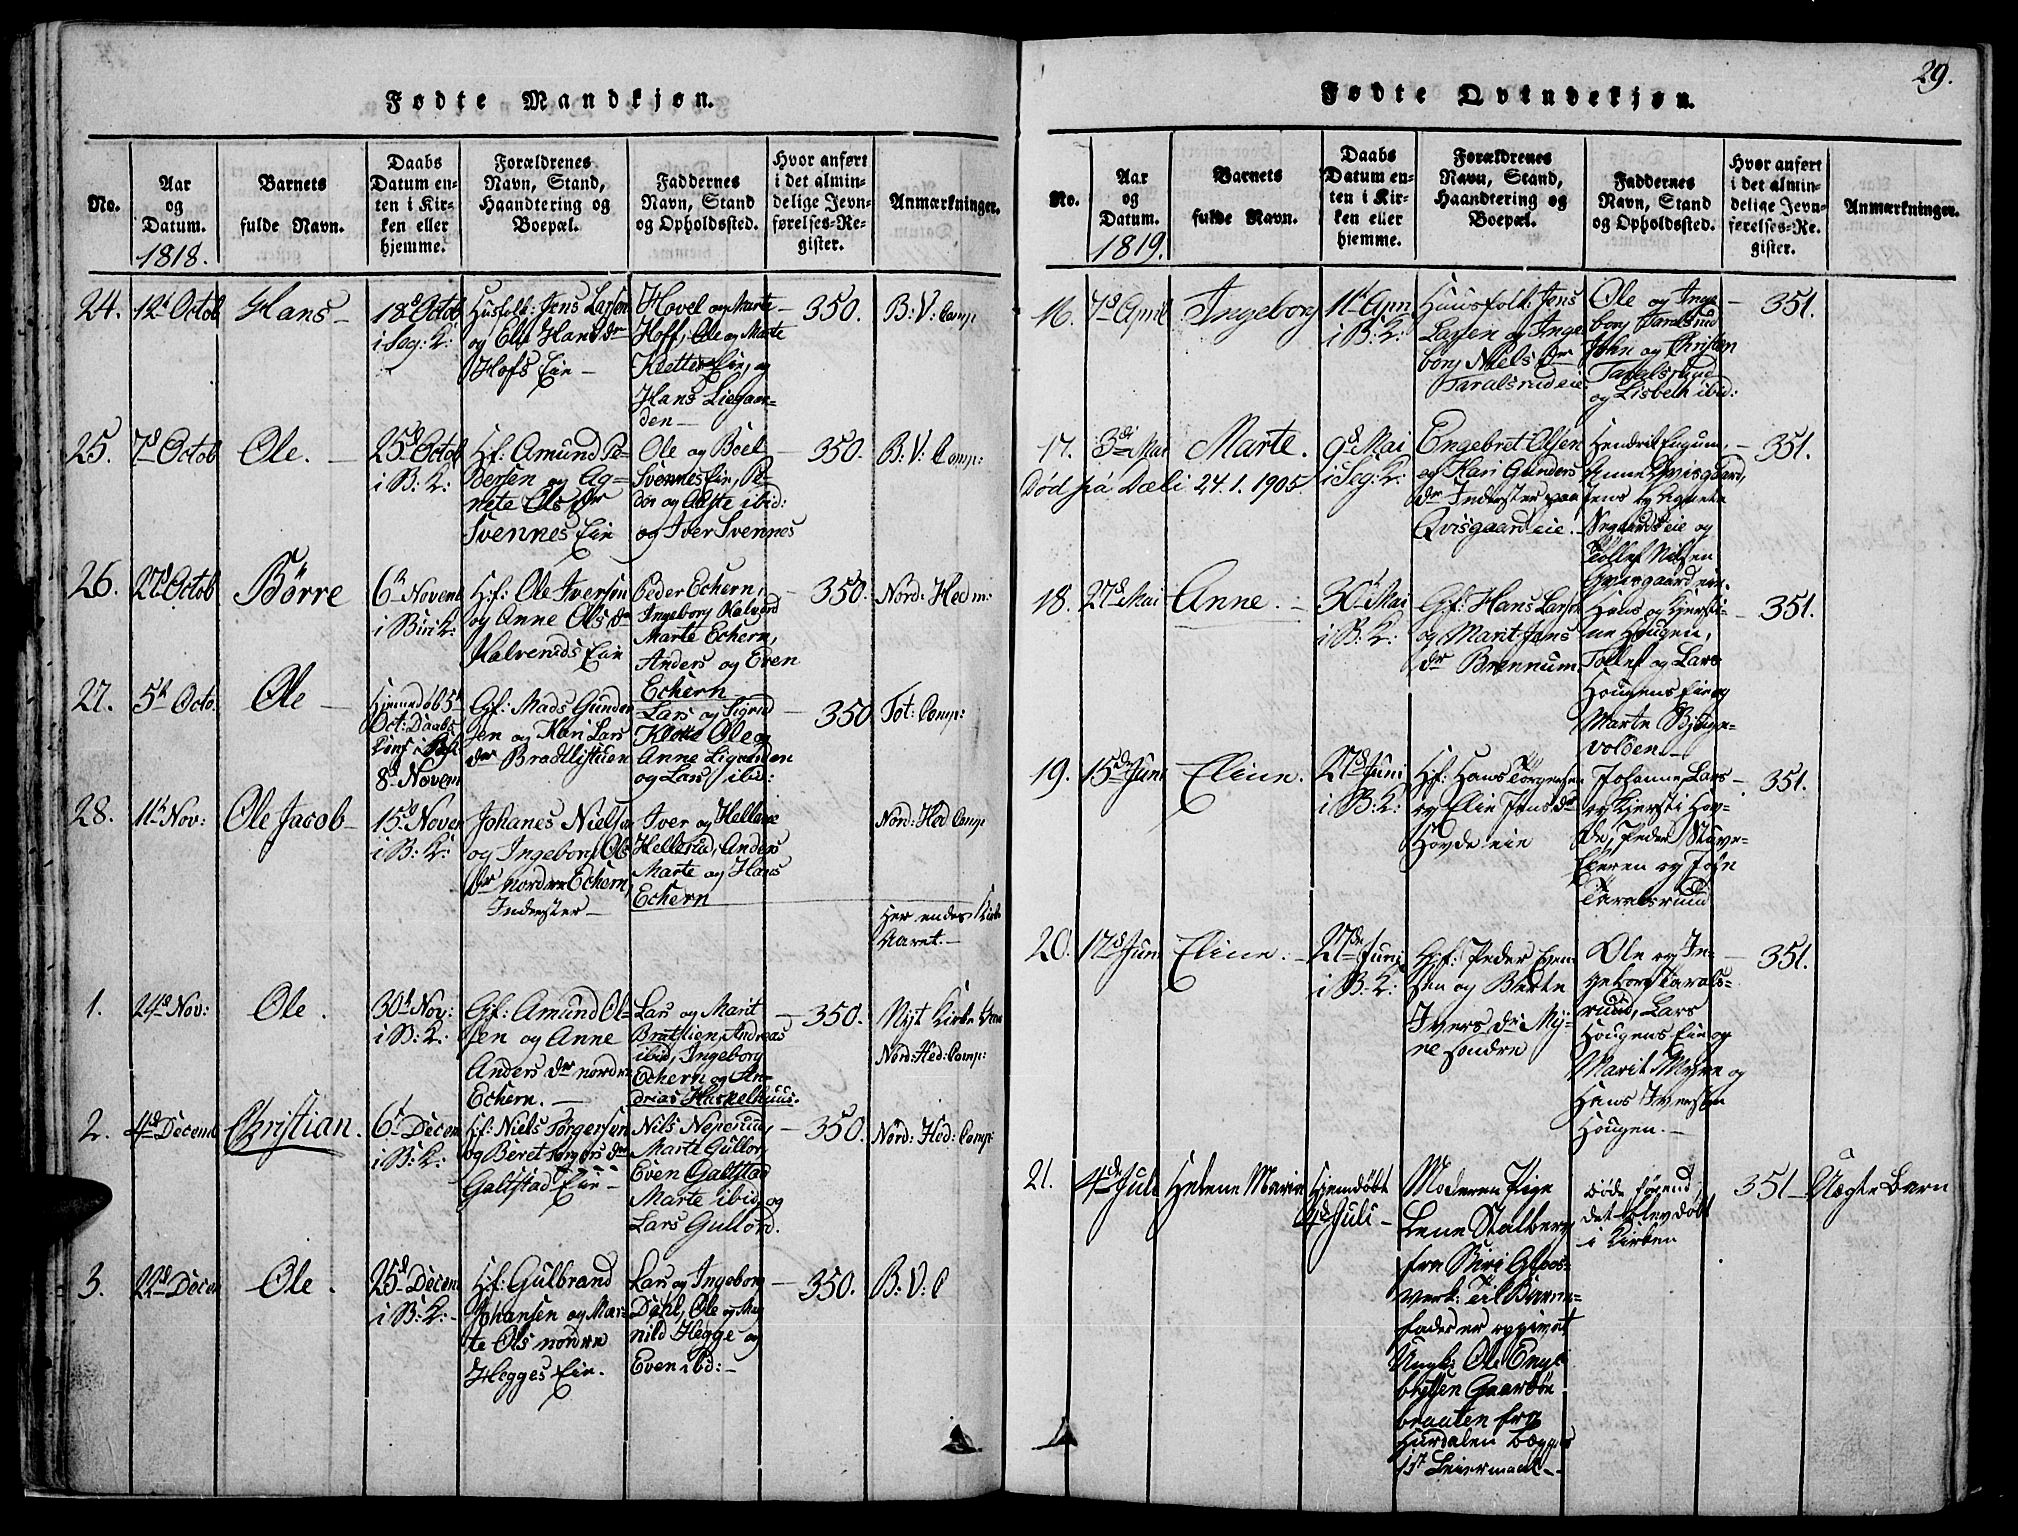 Fødte Mandkjøn.
No.
Aar
og
Datum.
1818.
Barnets
fulde Navn.
Daabs
Datum en-
ten i Kir-
ken eller
hjemme.
Forældrenes
Navn, Stand,
Haandtering og
Boepæl.
Faddernes
Navn, Stand
og Opholdssted.
Hvor anført
i det almin-
delige Jevn-
førelses-Re-
gister.
Anmærkninger.
24.
12t Octob
Hans
18d Octob
i Seg: K:
Husfolk: Jens Larsen
og Elie Hans dr
Hofs Eie
Hovel og Marte
Hoff, Ole og Marte
Kletten Eie, og
Hans Liegaar-
den
350.
B: V: Comp:
25.
7d Octob
Ole.
25d Octob
i B: K:
Hf: Amund Pe-
dersen og Ag-
nete Ols dr
Svennes Eie
Ole og Boel
Svennes Eie, Pe-
der og Aaste ibid:
og Iver Svennes
350.
B: V: Comp:
26.
27d Octob
Börre
6te Novemb
i Biri K:
Hf: Ole Iversen
og Anne Ols dr
Halveruds Eie
Peder Echern,
Ingeborg Halverd
Marte Echern,
Anders og Even
Echern
350.
Nord: Hedm:
27.
5t Octo.
Ole
Hjemmedöb 5t
Oct: Daabs
8d Novem
Gf: Mads Gunder
sen og Kari Lars
dr Bradlistuen
Lars og Sigrid
Klötte Ole og
Anne
og Lars ibid:
350
Tot: Comp:
28.
11t Nov:
Ole Jacob
15d Novem
i B: K:
Johanes Nielsen
og Ingeborg Ols
dr nordre Echern,
Inderster
Iver og Hellene
Hellerud, Anders
Marte og Hans
Echern
Nord: Hed Comp
Her endes Kirke
Aaret.
1.
24d Nov:
Ole.
30t Nov:
i B: K:
Gf: Amund Ol-
sen og Anne
Anders dr nordre
Echern.
Lars og Marit
Bratlien, Andreas
ibid, Ingeborg
Echern og An-
drias Haskelhuus.
350.
Nyt Kirke Aar
Nord: Hed: Comp:
2.
4d Decemb
Christian.
6t Decem
i B: K:
Hf: Niels Torgersen
og Beret Torgers dr
Galtstad Eie
Nils Neperud,
Marte Gullor,
Even Galtstad
Marte ibid, og
Lars Gullord.
350.
Nord: Hed: Comp:
3.
22d Decem
Ole.
25d Decem
i B: K:
Hf: Gulbrand
Johansen og Mar-
te Ols nordre
Hegges Eie.
Lars og Ingeborg
Dahl, Ole og Mag
nild Hegge og
Even ibd:
350.
B: V: C
29.
Fødte Qvindekjøn.
No.
Aar
og
Datum.
1819.
Barnets
fulde Navn.
Daabs
Datum en-
ten i Kir-
ken eller
hjemme.
Forældrenes
Navn, Stand,
Haandtering og
Boepæl.
Faddernes
Navn, Stand
og Opholdssted.
Hvor anført
i det almin-
delige Jevn-
førelses-Re-
gister.
Anmærkninger.
16.
7d April
Ingeborg
11t Apri
i B: K:
Huusfolk: Jens
Larsen og Inge
borg Niels dr
Taralsrud eie
Ole og Inge
borg Taralsrud
John og Christen
Taralsrud
og Lisbeth ibid:
351.
17.
3di Mai
Marte.
9d Mai
i Seg: K:
Engebret Olsen
og Kari Gunders
dr Inderster paa
Qvisgaard eie.
Hendrik Engum,
Anne Qvisgaard,
Jens og Agnete
Tollef Nilsen
Qvisgaard eie.
351.
Död på Dæli 24.1.1905
18.
27d Mai
Anne.
30t Mai
i B: K:
Gf: Hans Larsen
og Marit Jens
dr Brennum.
Hans og Kjersti-
ne Hougen,
Tollef og Lars
Hougens Eie og
Marte Bjorge-
volden
351.
19.
15d Juni
Eline.
27d Juni
i B: K:
Hf: Hans Torgersen
og Elie Jens dr
Hovde eie
Johanne Lars
og Kjersti Hov-
de, Peder Stuve-
og John
Taralsrud
351.
20.
17d Juni
Eline.
27de Juni
i B: K:
Gf: Peder Even
sen og Berte
Ivers dr My-
re söndre
Ole og In-
geborg Tarals-
rud, Lars
Hougens Eie og
Marit Myre og
Hans Iversen
Hougen.
351.
21.
4de Juli
Helene Maria
Hjemdöbt
4d Juli
Moderen Pige
Lene Stalberg
fra Biri Glaas-
verk: Til Barne-
fader er opgivet
Ungk: Ole Enge
bretsen Gaardön
braaten fra
Hurdalen begges
1st Leiermaal
Döde förend
det blev döbt
i Kirken
351
Uægte Barn